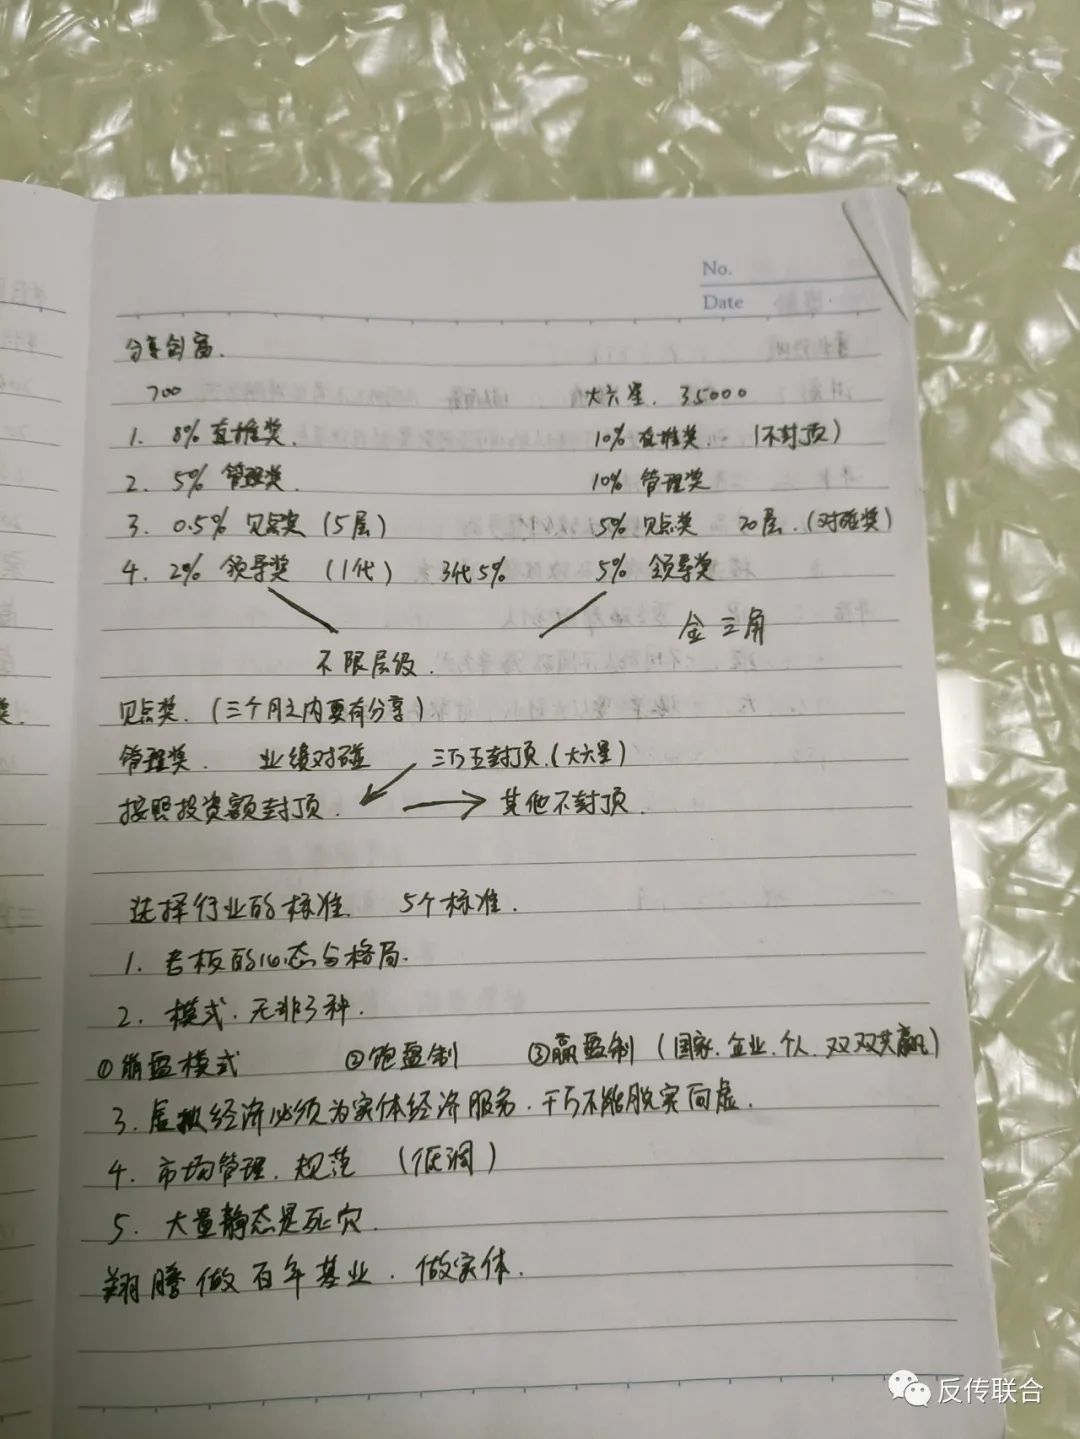 No.
Date
分享创富.
700 大六星. 35000
1. 8% 直推奖. 10% 直推奖. (不封顶)
2. 5% 管理奖. 10% 管理奖
3. 0.5% 见点奖 (5层) 5% 见点奖 20层. (对碰奖)
4. 2% 领导奖 (1代) 3代5% 5% 领导奖
金三角
不限层级.
见点奖. (三个月之内要有分享)
管理奖. 业绩对碰 三万五封顶. (大六星)
按照投资额封顶. 其他不封顶.
选择行业的标准. 5个标准.
1. 老板的心态与格局.
2. 模式. 无非3种.
①崩盘模式 ②饱盈制 ③赢盈制 (国家. 企业. 个人. 双双共赢)
3. 虚拟经济必须为实体经济服务. 千万不能脱实向虚.
4. 市场管理. 规范 (低调)
5. 大量静态是死穴.
翔腾做百年基业. 做实体.
反传联合